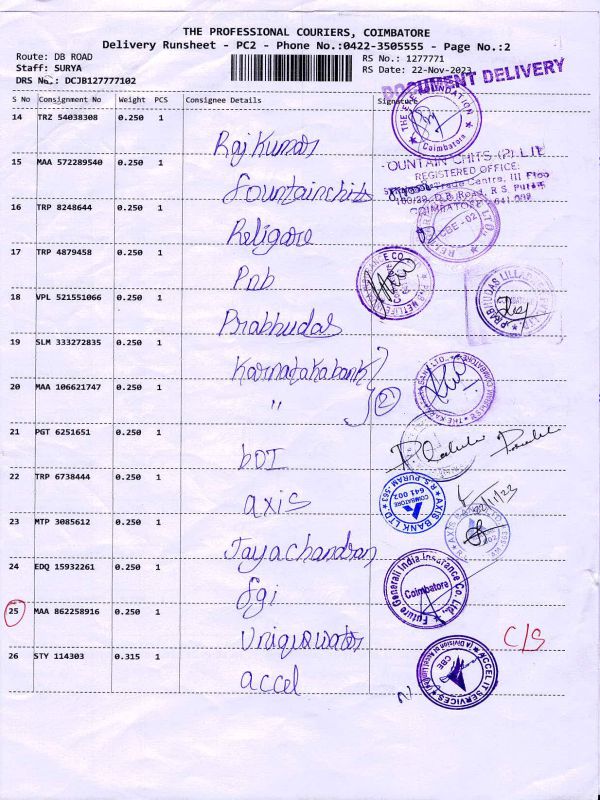 THE PROFESSIONAL COURIERS, COIMBATORE
Delivery Runsheet - PC2 - Phone No.:0422-3505555 - Page No.:2
Route: DB ROAD
RS No.: 1277771
Staff: SURYA
RS Date: 22-Nov-2023
DRS No.: DCJB127777102
DOCUMENT DELIVERY
S No Consignment No Weight PCS Consignee Details Signature
14 TRZ 54038308 0.250 1 Raj Kumar
Coimbatore
15 MAA 572289540 0.250 1 Fountainchits
OUNTAIN CHITS (P) LTE
REGISTERED OFFICE:
Trade Centre, III Floo
D.B. Road, R.S Puram
COIMBATORE - 641 002
16 TRP 8248644 0.250 1 Religare
CBE - 02
17 TRP 4879458 0.250 1 Pnb
PNB METLIFE
18 VPL 521551066 0.250 1 Prabhudas
PRABHUDAS LILLADHER
19 SLM 333272835 0.250 1 Karnatakabank
20 MAA 106621747 0.250 1 " 2
THE KARNATAKA BANK LTD.
21 PGT 6251651 0.250 1 bOI
22 TRP 6738444 0.250 1 axis
AXIS BANK LTD. R.S. PURAM
COIMBATORE
641 002
22/11/23
23 MTP 3085612 0.250 1 Jayachandran
24 EDQ 15932261 0.250 1 fgi
Future Generali India Insurance Co. Ltd.,
Coimbatore
25 MAA 862258916 0.250 1 Uniquwator
C/S
26 STY 114303 0.315 1 accel
ACCEL IT SERVICES
CBE